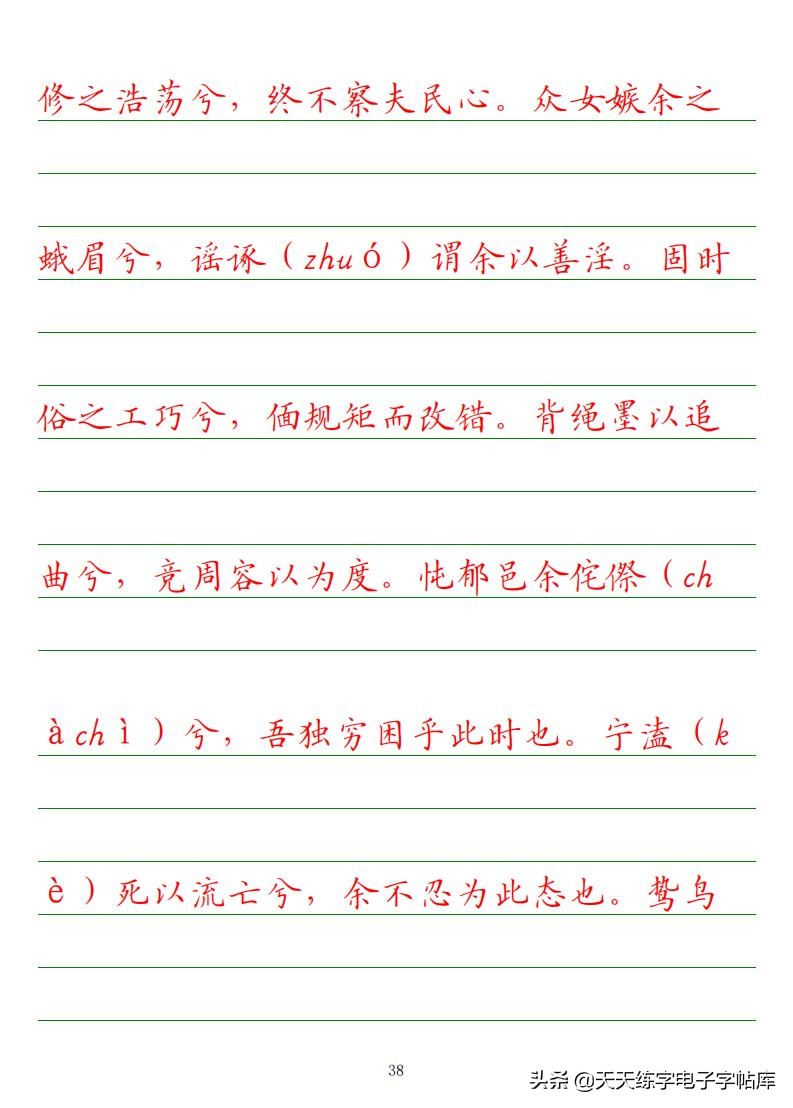 修之浩荡兮，终不察夫民心。众女嫉余之
蛾眉兮，谣诼（zhuó）谓余以善淫。固时
俗之工巧兮，偭规矩而改错。背绳墨以追
曲兮，竞周容以为度。忳郁邑余侘傺（ch
àchì）兮，吾独穷困乎此时也。宁溘（k
è）死以流亡兮，余不忍为此态也。鸷鸟
38
头条 @天天练字电子字帖库